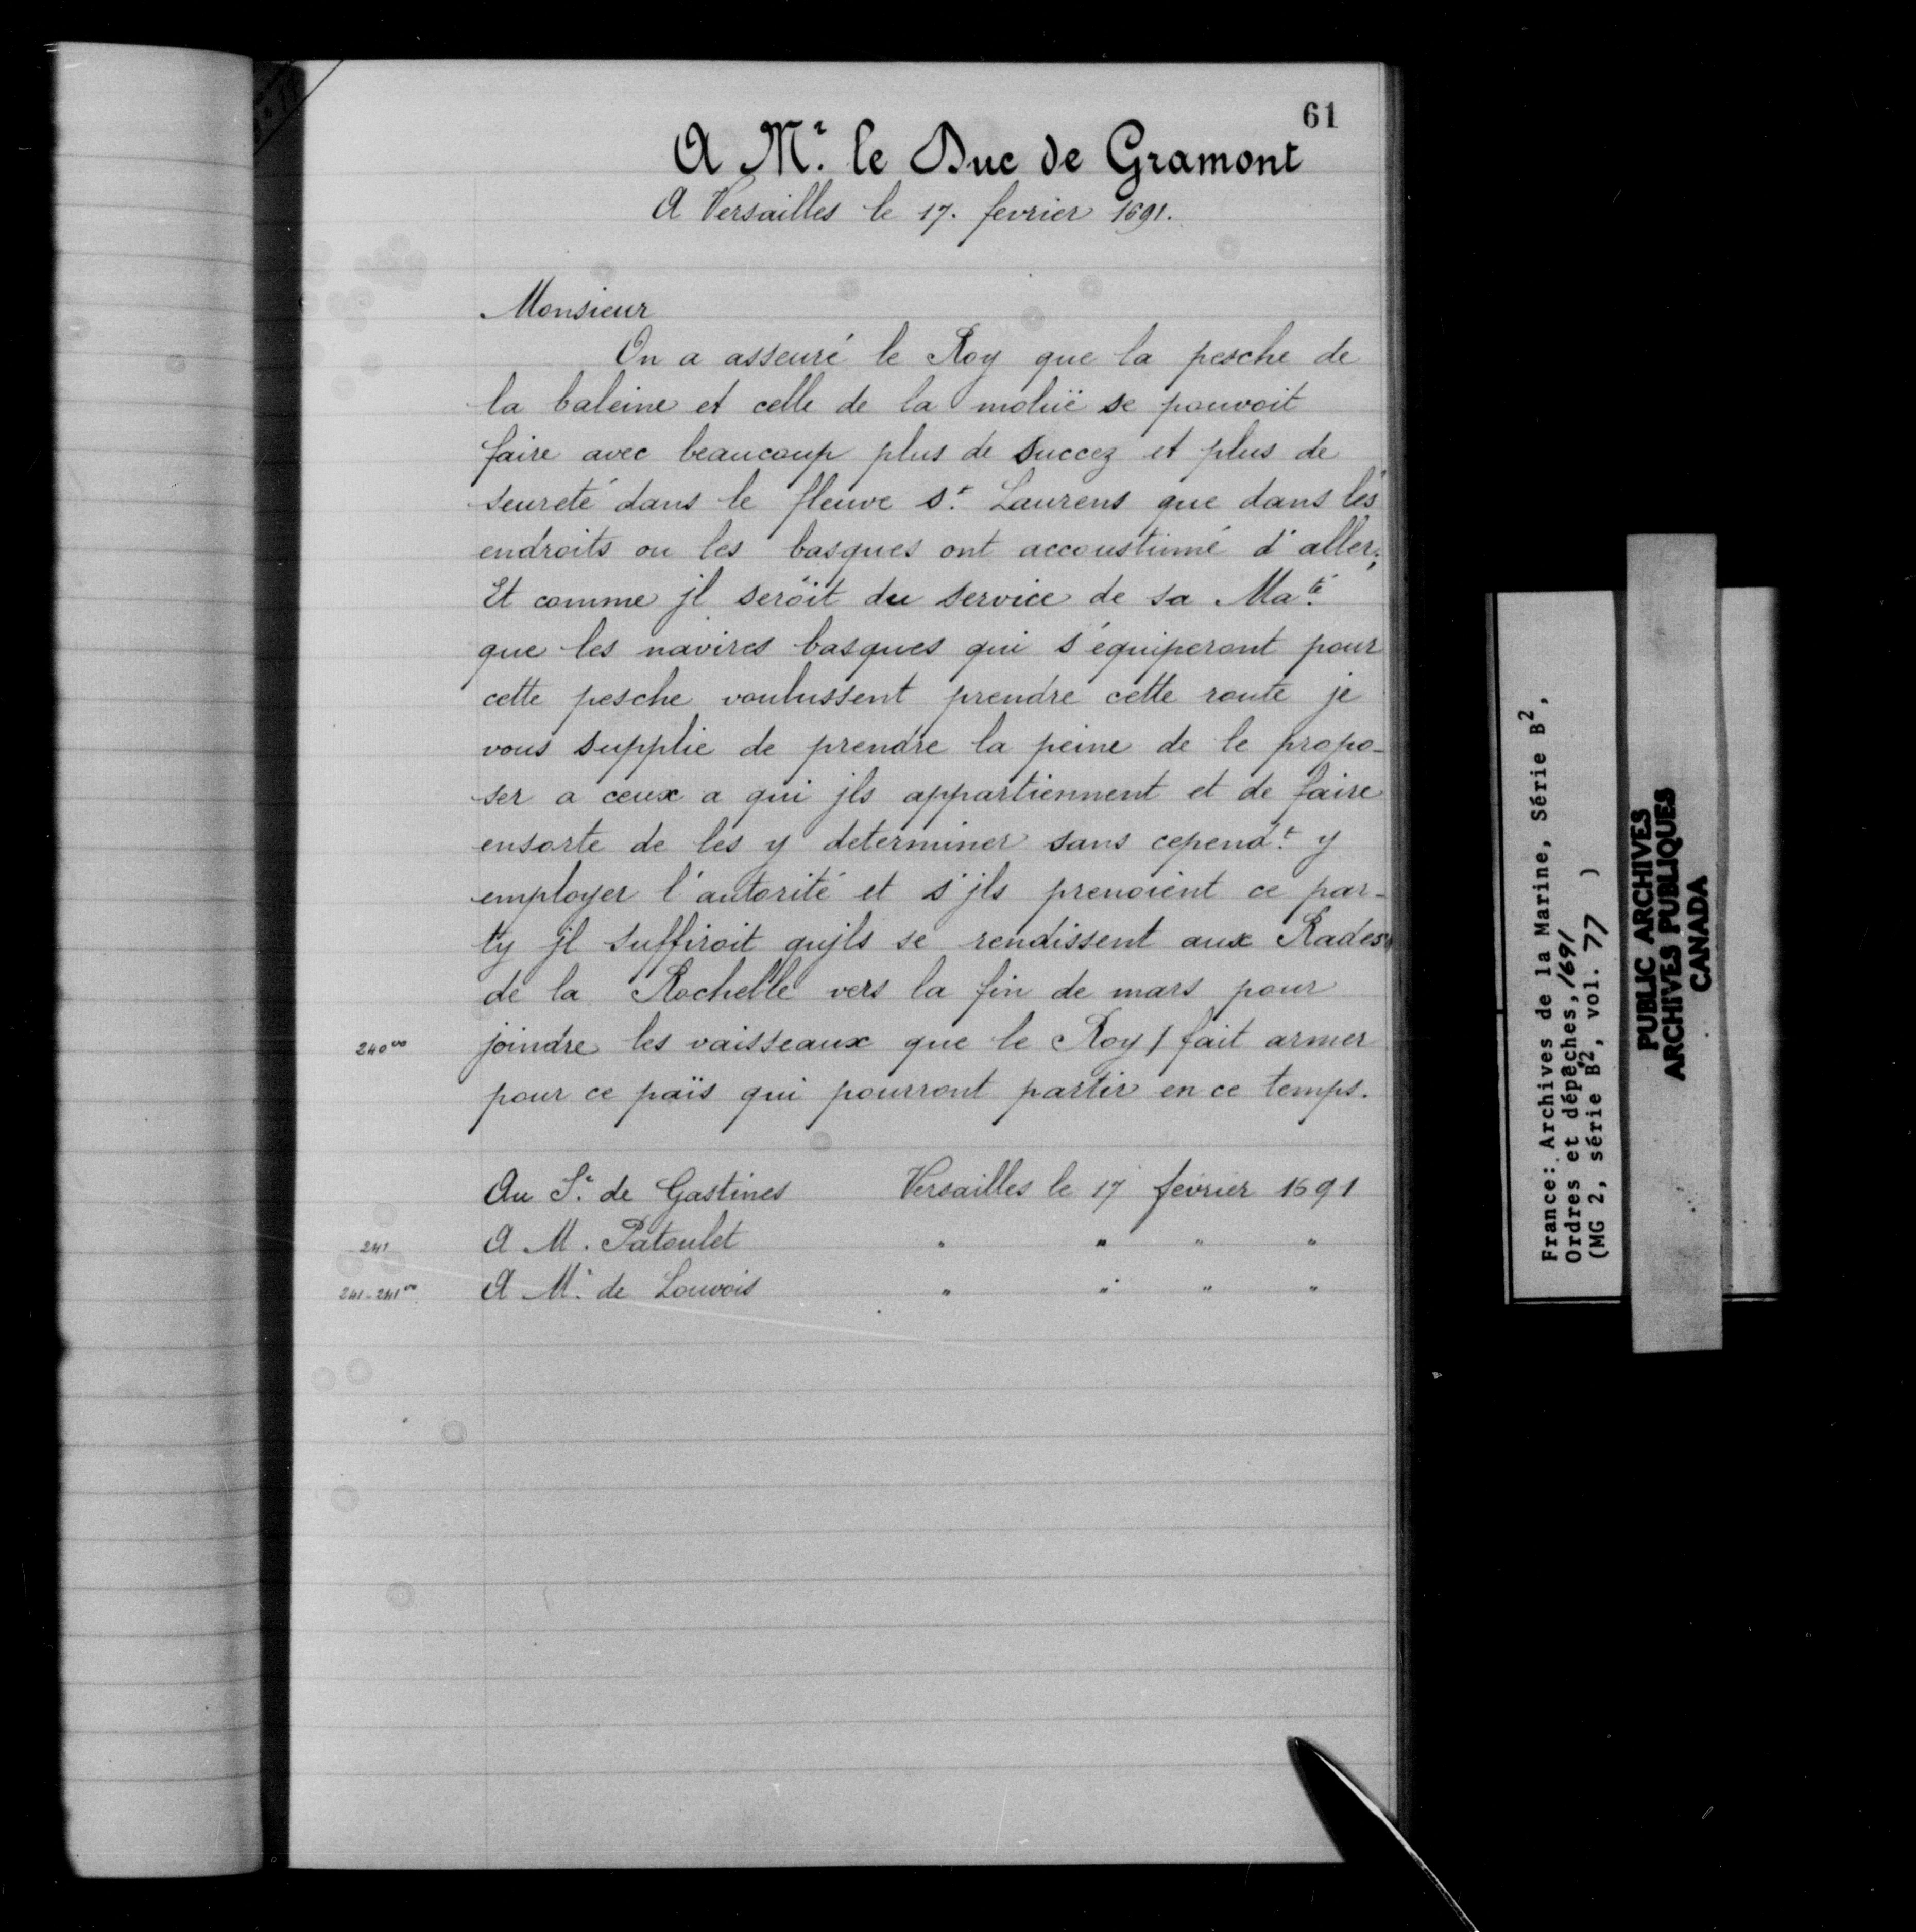 61
A M.r le Duc de Gramont
A Versailles le 17. fevrier 1691.
Monsieur
On a asseuré le Roy que la pesche de
la baleine et celle de la moluë se pouvoit
faire avec beaucoup plus de succez et plus de
seureté dans le fleuve s.t Laurens que dans les
endroits ou les basques ont accoustumé d'aller;
Et comme jl seroit du service de sa Ma.té
que les navires basques qui s'équiperont pour
cette pesche voulussent prendre cette route je
vous supplie de prendre la peine de le propo-
ser a ceux a qui jls appartiennent et de faire
ensorte de les y determiner sans cepend.t y
employer l'autorité et s'jls prenoient ce par-
ty jl suffiroit qujls se rendissent aux Rades
de la Rochelle vers la fin de mars pour
240 vo joindre les vaisseaux que le Roy / fait armer
pour ce païs qui pourront partir en ce temps.
Au S.r de Gastines Versailles le 17 fevrier 1691
241 A M. Patoulet " " " "
241-241 vo A M.r de Louvois " " " "
France: Archives de la Marine, Série B2,
Ordres et dépêches, 1691
(MG 2, série B2, vol. 77 )
PUBLIC ARCHIVES
ARCHIVES PUBLIQUES
CANADA